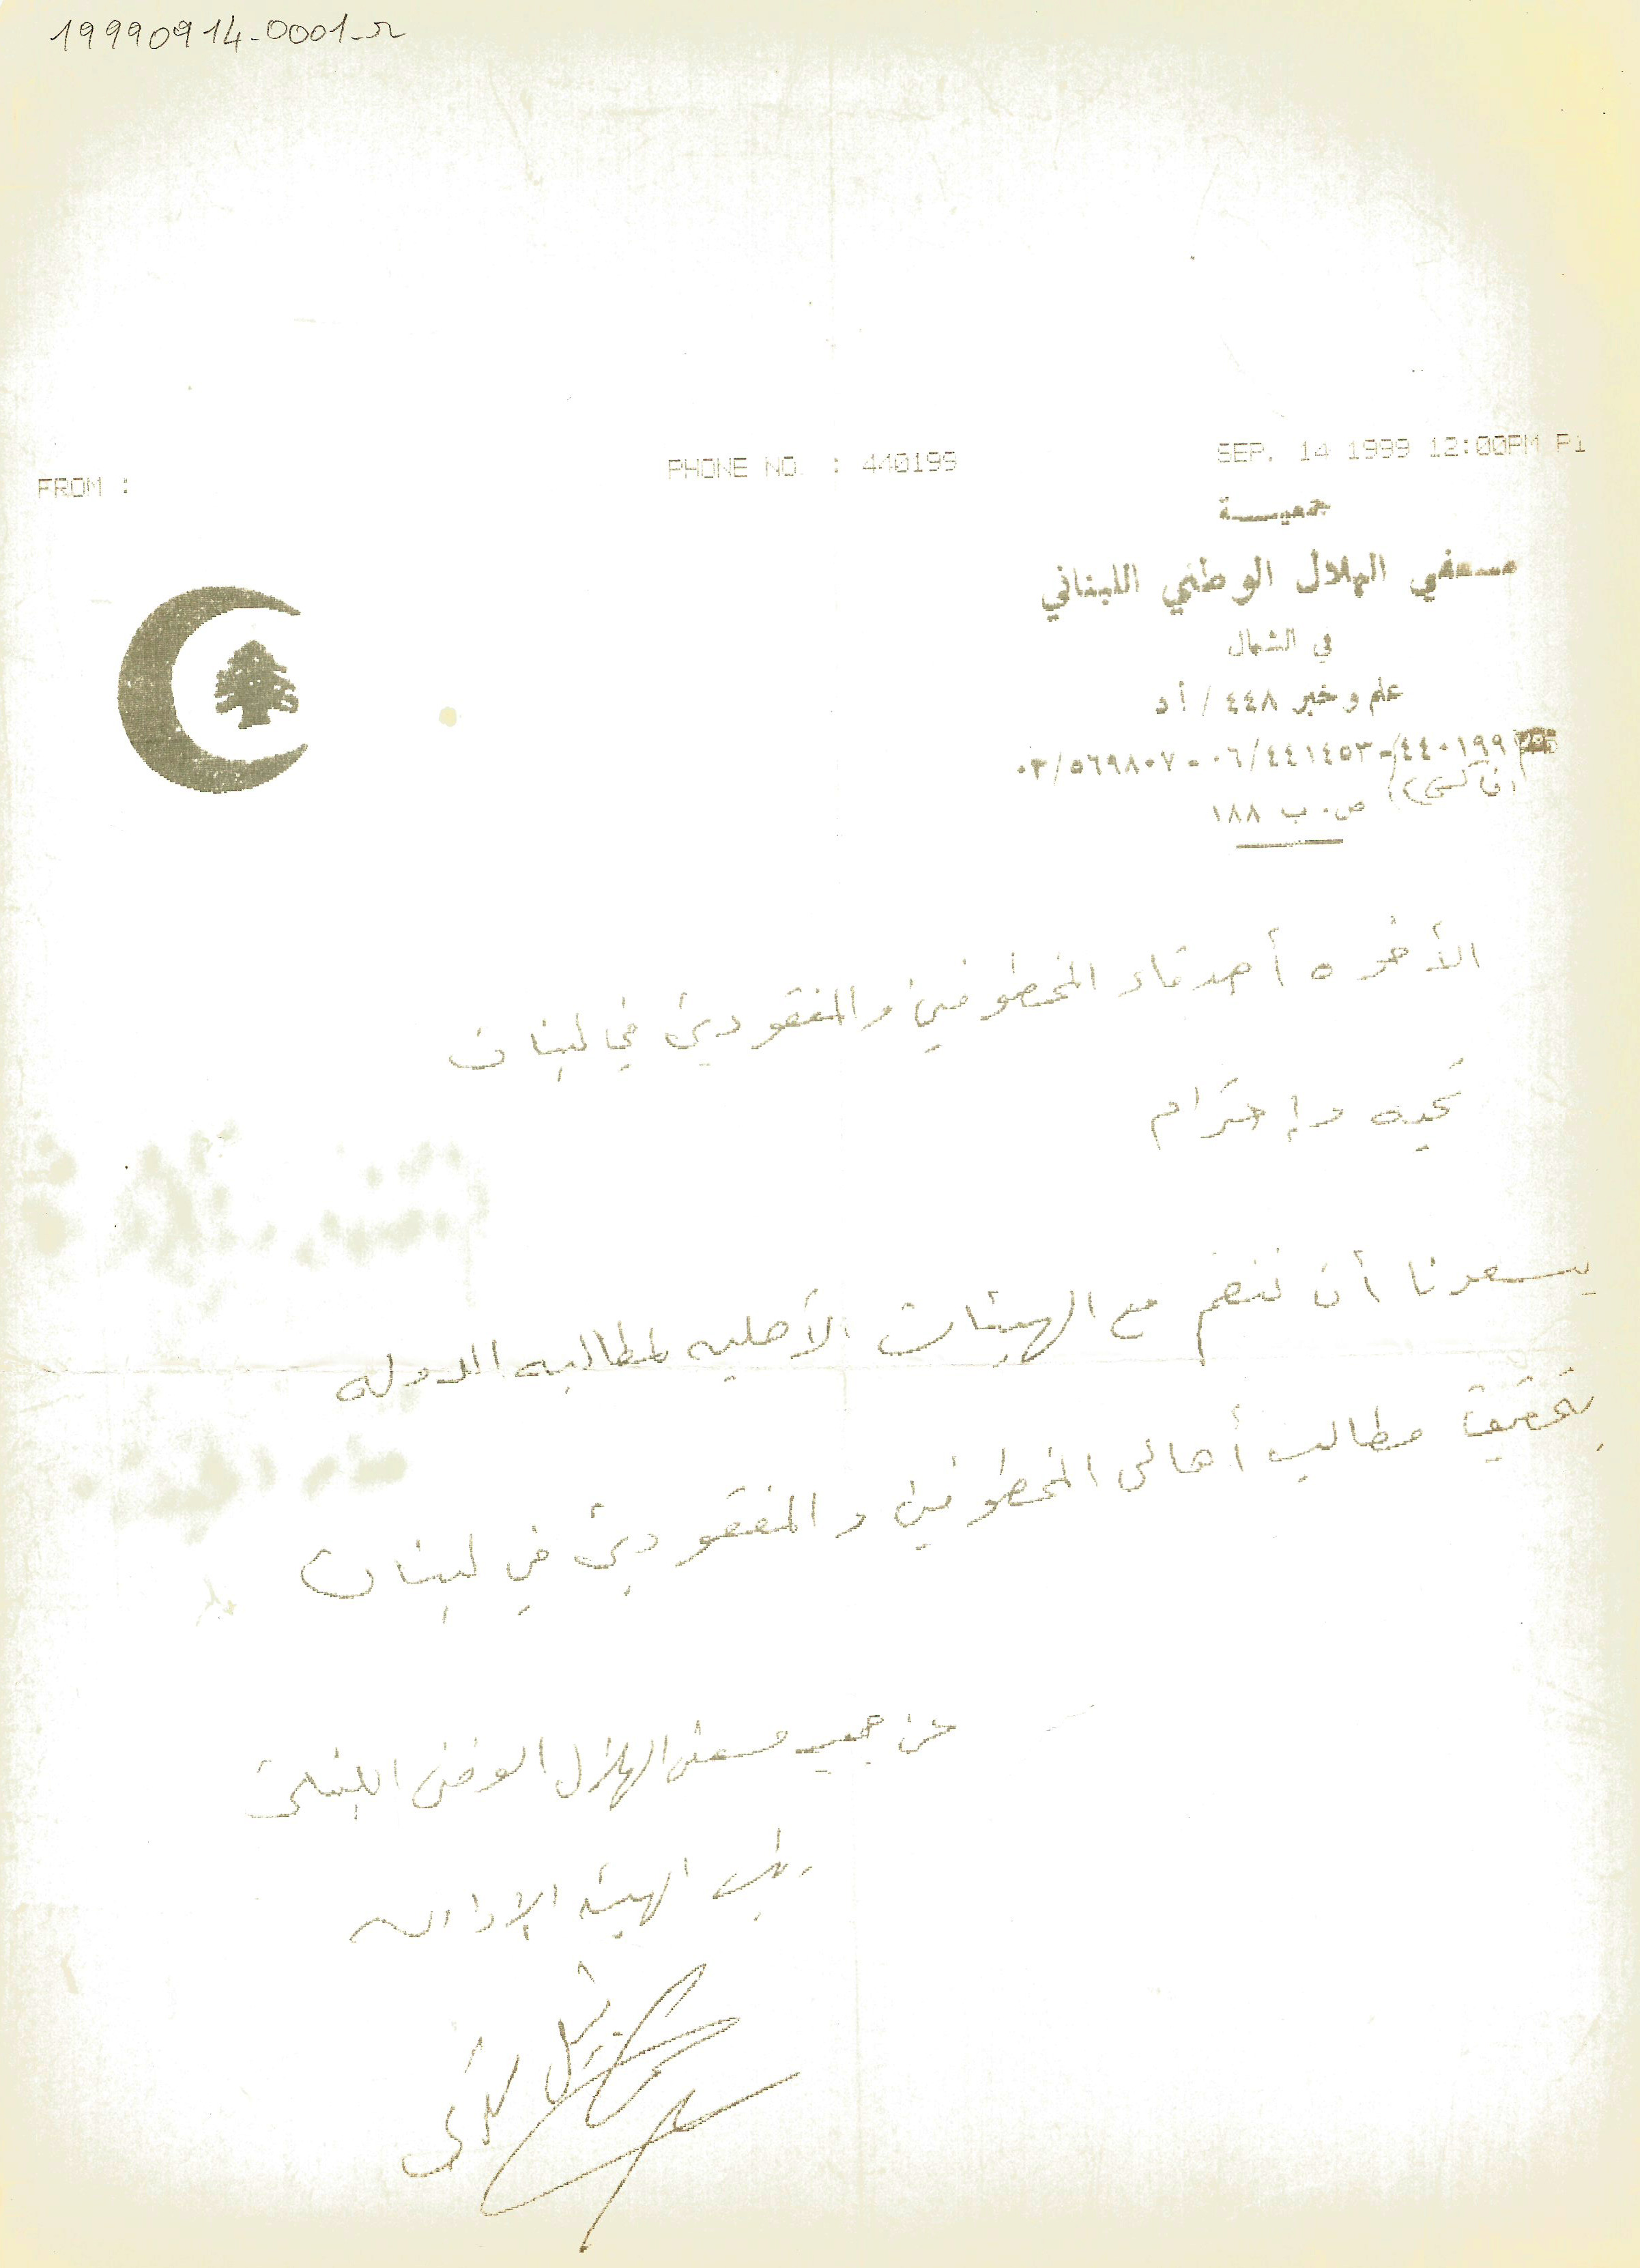 19990914-0001-r
FROM :
PHONE NO. : 440199
SEP. 14 1999 12:00PM P1
جمعيــة
مسعفي الهلال الوطني اللبناني
في الشمال
علم وخبر ٤٤٨ / أ د
٤٤٠١٩٩ - ٠٦/٤٤١٤٥٣ - ٠٣/٥٦٩٨٠٧
(فاكس)
ص.ب ١٨٨
الأخوه أصدقاء المخطوفين والمفقودين في لبنان
تحيه وإحترام
يسعدنا أن ننضم مع الهيئات الأهليه لمطالبه الدوله
بتحقيق مطالب أهالي المخطوفين والمفقودين في لبنان
عن جمعيه مسعفي الهلال الوطني اللبناني
الهيئه الإداريه